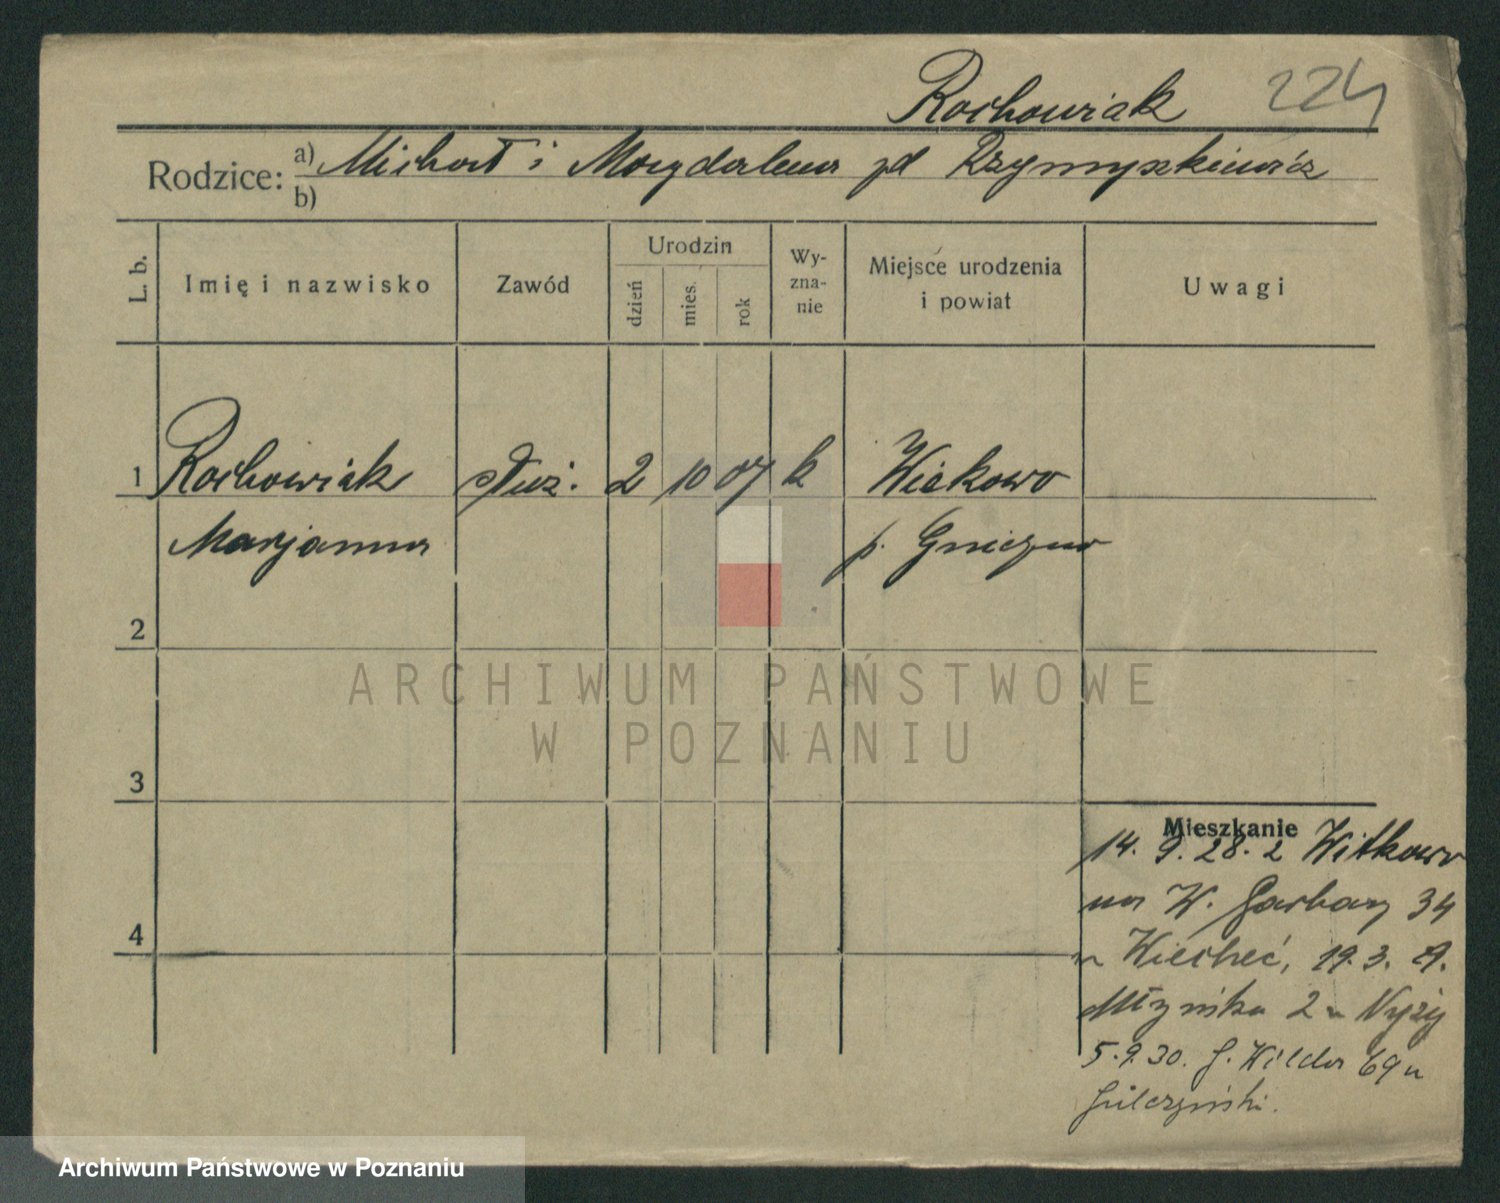 Rochowiak 224
Rodzice: a) Michał i Magdalena zd Rzymyszkiewicz
b)
L. b. Imię i nazwisko Zawód Urodzin dzień mies. rok Wyznanie Miejsce urodzenia i powiat Uwagi
1 Rochowiak Służ. 2 10 07 k Wiekowo
Marjanna p. Gniezno
2
3
4
Mieszkanie
14. 9. 28. z Witkowo
na W. Garbary 34
u Wiecheć, 19.3. 29.
Młyńska 2 u Nyży
5.9.30. G. Wilda 69 u
Gulczyński.
ARCHIWUM PAŃSTWOWE
W POZNANIU
Archiwum Państwowe w Poznaniu